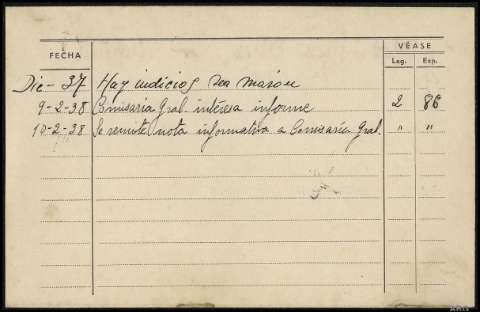 VÉASE
FECHA
Leg. Exp.
Dic - 37 Hay indicios sea masón
9-2-38 Comisaría Gral interesa informe 2 86
10-2-38 Se remite nota informativa a Comisaría Gral. " "